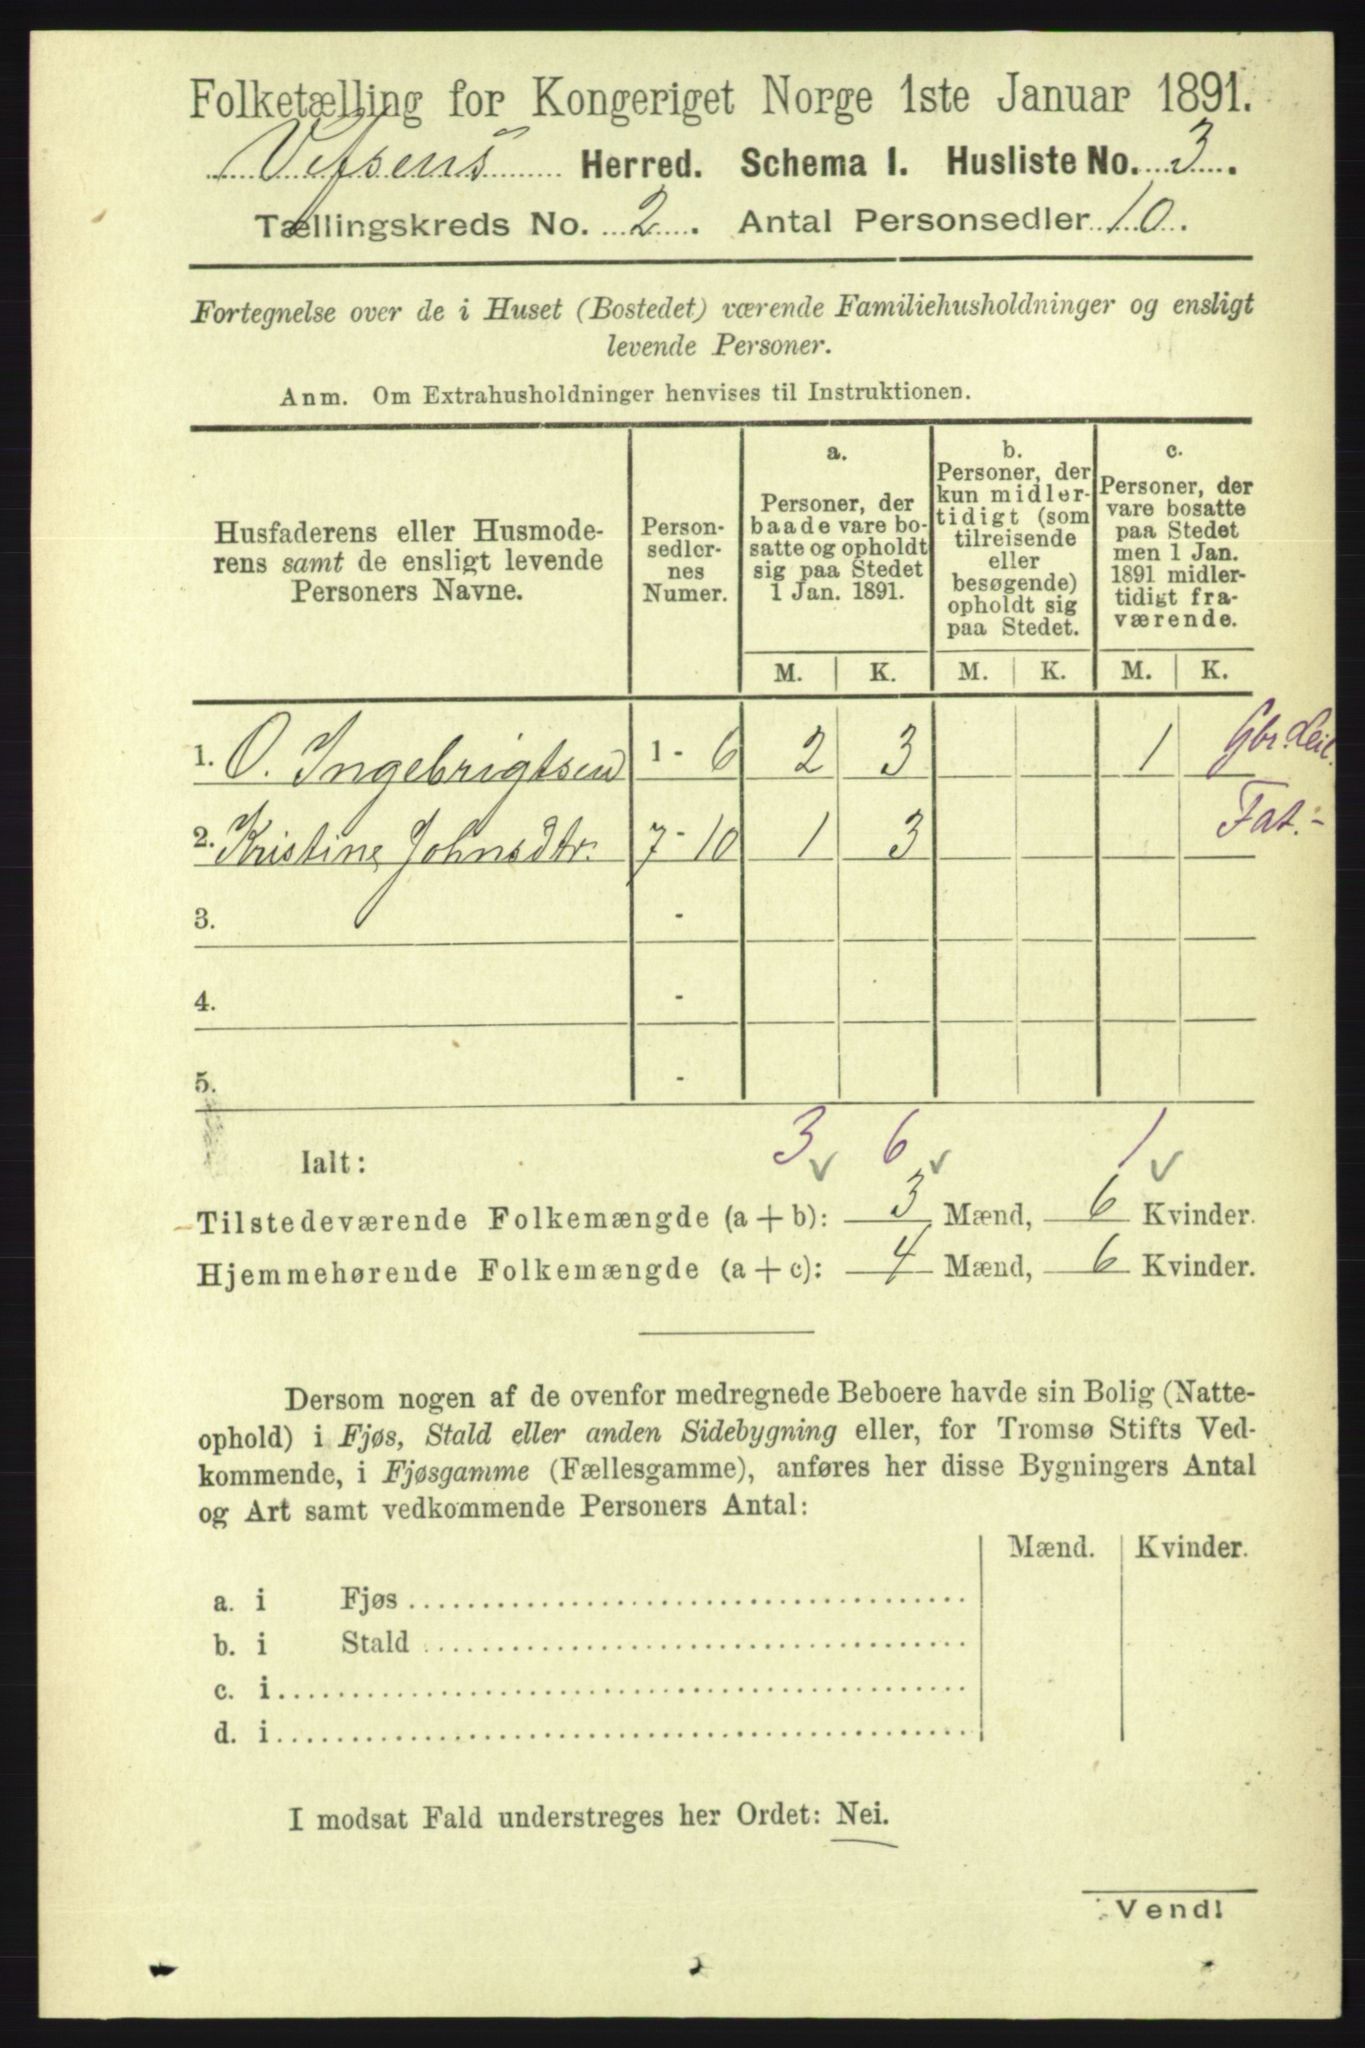 Folketælling for Kongeriget Norge 1ste Januar 1891.
Vefsens Herred. Schema I. Husliste No. 3.
Tællingskreds No. 2. Antal Personsedler 10.
Fortegnelse over de i Huset (Bostedet) værende Familiehusholdninger og ensligt
levende Personer.
Anm. Om Extrahusholdninger henvises til Instruktionen.
Husfaderens eller Husmode-
rens samt de ensligt levende
Personers Navne.
Person-
sedler-
nes
Numer.
a.
Personer, der
baade vare bo-
satte og opholdt
sig paa Stedet
1 Jan. 1891.
b.
Personer, der
kun midler-
tidigt (som
tilreisende
eller
besøgende)
opholdt sig
paa Stedet.
c.
Personer, der
vare bosatte
paa Stedet
men 1 Jan.
1891 midler-
tidigt fra-
værende.
M. K. M. K. M. K.
1. O. Ingebrigtsen 1 - 6 2 3 1 Gbr. Leil.
2. Kristine Johnsdtr. 7 - 10 1 3 Fat. -
3. -
4. -
5. -
Ialt: 3 6 1
Tilstedeværende Folkemængde (a + b): 3 Mænd, 6 Kvinder.
Hjemmehørende Folkemængde (a + c): 4 Mænd, 6 Kvinder.
Dersom nogen af de ovenfor medregnede Beboere havde sin Bolig (Natte-
ophold) i Fjøs, Stald eller anden Sidebygning eller, for Tromsø Stifts Ved-
kommende, i Fjøsgamme (Fællesgamme), anføres her disse Bygningers Antal
og Art samt vedkommende Personers Antal:
Mænd. Kvinder.
a. i Fjøs
b. i Stald
c. i
d. i
I modsat Fald understreges her Ordet: Nei.
Vend!